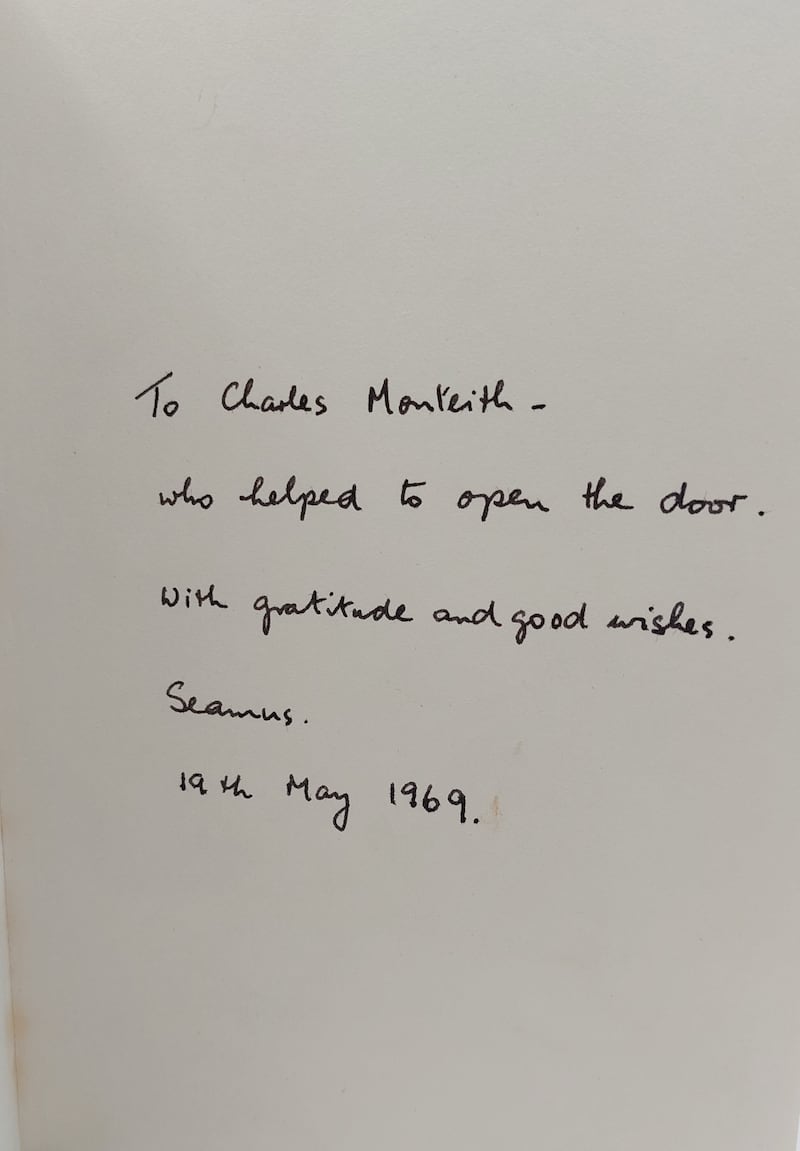 To Charles Monteith -
who helped to open the door.
With gratitude and good wishes.
Seamus.
19th May 1969.